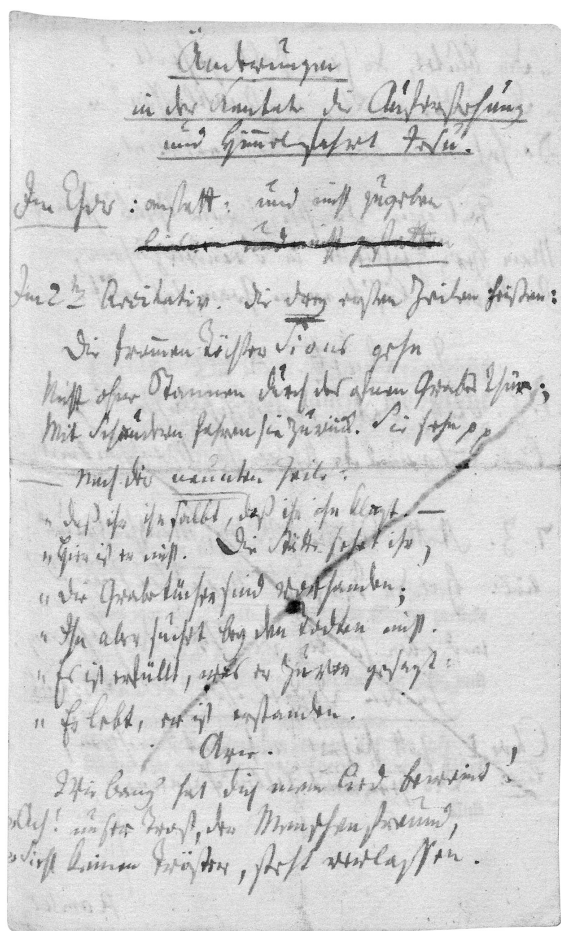 Änderungen
in der Kantate die Auferstehung
und Himmelfahrt Jesu.
Im Chor : anstatt : und nicht zugeben
Im 2ten Recitativ. die drey ersten Zeilen heißen :
Die frommen Töchter Sions gehn
Nicht ohne Staunen durch des ofnen Grabes Thür;
Mit Schaudern fahren sie zurück. Sie sehn pp
Nach der neunten Zeile :
" daß ihr ihn salbt, daß ihr ihn klagt. —
" Hier ist er nicht. Die Stätte sehet ihr,
" Die Grabetücher sind vorhanden;
" Ihn aber suchet bey den Todten nicht.
" Es ist erfüllt, was er zuvor gesagt :
" Er lebt, er ist erstanden.
Arie.
Wie bang hat dich mein Lied beweint!
" Ach! unser Trost, der Menschenfreund,
" Sieht keinen Tröster, steht verlassen.